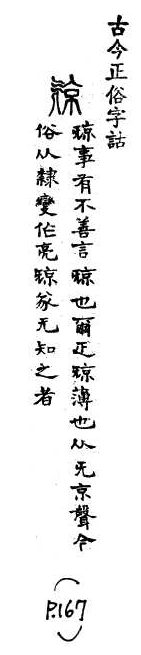 古今正俗字詁
㹁事有不善言㹁也爾正㹁薄也从旡京聲今
俗从隸變作亮㹁篆无知之者
(P.167)